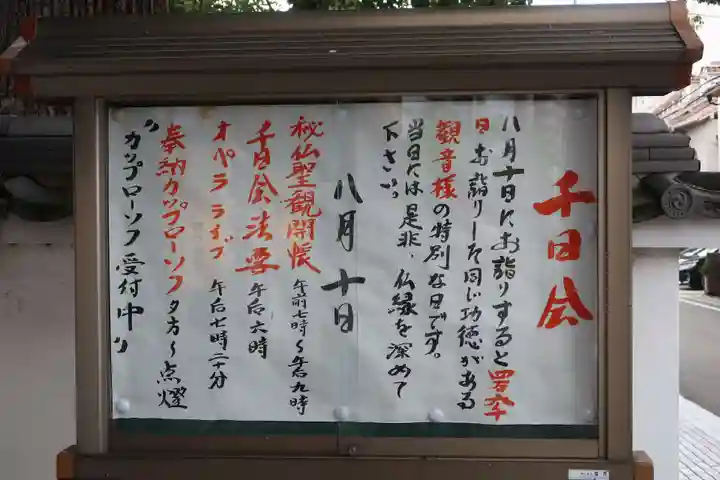 千日会
八月十日にお詣りすると四万六千
日お詣りした同じ功徳がある
観音様の特別な日です。
当日には是非、仏縁を深めて
下さい。
八月十日
秘仏聖観開帳 午前七時〜午后九時
千日会法要 午后六時
オペラライブ 午后七時二十分
奉納カップローソク 夕方〜点燈
"カップローソク受付中"